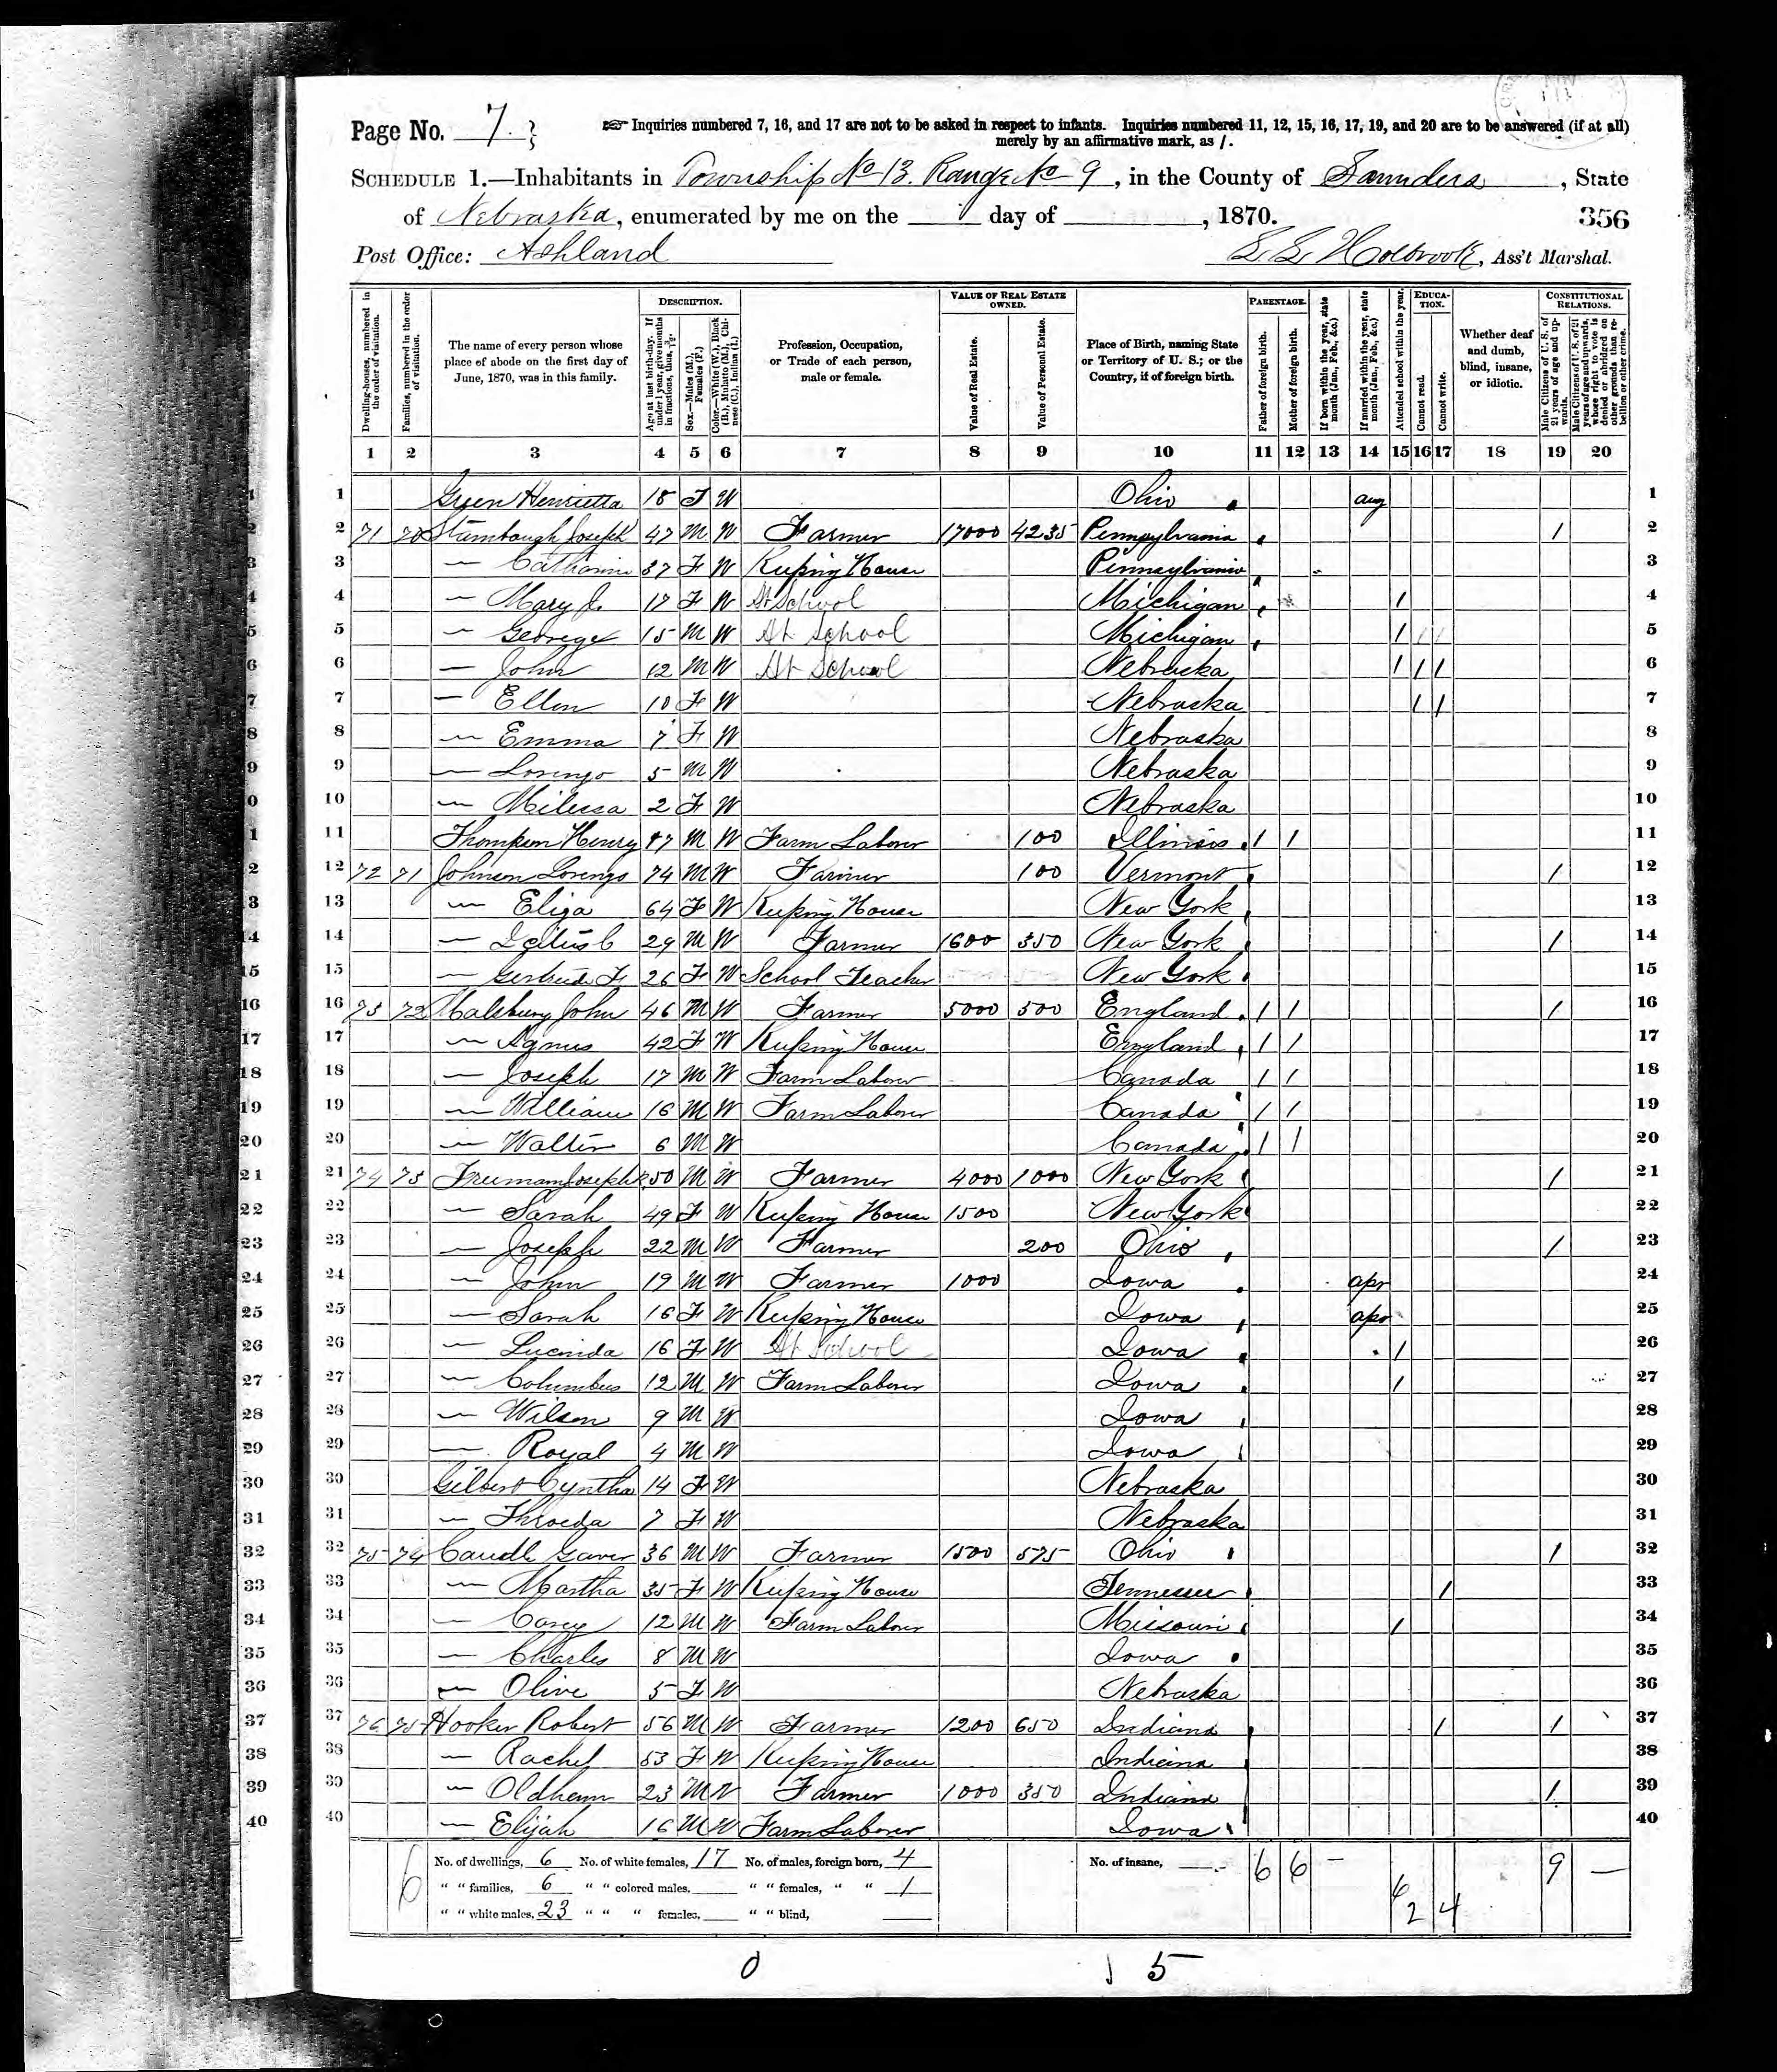 Page No. 7.
☞ Inquiries numbered 7, 16, and 17 are not to be asked in respect to infants. Inquiries numbered 11, 12, 15, 16, 17, 19, and 20 are to be answered (if at all)
merely by an affirmative mark, as /.
SCHEDULE 1.—Inhabitants in Township No 13. Range No 9, in the County of Saunders, State
of Nebraska, enumerated by me on the day of , 1870.
356
Post Office: Ashland
L. L. Holbrook, Ass't Marshal.
Dwelling-houses, numbered in the order of visitation.
Families, numbered in the order of visitation.
The name of every person whose place of abode on the first day of June, 1870, was in this family.
DESCRIPTION.
Age at last birth-day. If under 1 year, give months in fractions, thus, 3/12.
Sex.—Males (M.), Females (F.)
Color.—White (W.), Black (B.), Mulatto (M.), Chinese (C.), Indian (I.)
Profession, Occupation, or Trade of each person, male or female.
VALUE OF REAL ESTATE OWNED.
Value of Real Estate.
Value of Personal Estate.
Place of Birth, naming State or Territory of U. S.; or the Country, if of foreign birth.
PARENTAGE.
Father of foreign birth.
Mother of foreign birth.
If born within the year, state month (Jan., Feb., &c.)
If married within the year, state month (Jan., Feb., &c.)
Attended school within the year.
EDUCATION.
Cannot read.
Cannot write.
Whether deaf and dumb, blind, insane, or idiotic.
CONSTITUTIONAL RELATIONS.
Male Citizens of U. S. of 21 years of age and upwards.
Male Citizens of U. S. of 21 years of age and upwards, whose right to vote is denied or abridged on other grounds than rebellion or other crime.
1 2 3 4 5 6 7 8 9 10 11 12 13 14 15 16 17 18 19 20
1 Green Henrietta 18 F W Ohio aug 1
2 71 70 Stambaugh Joseph 47 M W Farmer 17000 4235 Pennsylvania / 2
3 — Catharine 37 F W Keeping House Pennsylvania 3
4 — Mary J. 17 F W At School Michigan / 4
5 — George 15 M W At School Michigan / 5
6 — John 12 M W At School Nebraska / / / 6
7 — Ellen 10 F W Nebraska / / 7
8 — Emma 7 F W Nebraska 8
9 — Lorenzo 5 M W Nebraska 9
10 — Milessa 2 F W Nebraska 10
11 Thompson Henry 47 M W Farm Laborer 100 Illinois / / 11
12 72 71 Johnson Lorenzo 74 M W Farmer 100 Vermont / 12
13 — Eliza 64 F W Keeping House New York 13
14 — C 29 M W Farmer 1600 350 New York / 14
15 — Gertrude F 26 F W School Teacher New York 15
16 73 72 Malsbury John 46 M W Farmer 5000 500 England / / / 16
17 — Agnus 42 F W Keeping House England / / 17
18 — Joseph 17 M W Farm Laborer Canada / / 18
19 — William 16 M W Farm Laborer Canada / / 19
20 — Walter 6 M W Canada / / 20
21 74 73 Freeman Joseph 50 M W Farmer 4000 1000 New York / 21
22 — Sarah 49 F W Keeping House 1500 New York 22
23 — Joseph 22 M W Farmer 200 Ohio / 23
24 — John 19 M W Farmer 1000 Iowa apr 24
25 — Sarah 16 F W Keeping House Iowa apr 25
26 — Lucinda 16 F W At School Iowa / 26
27 — Columbus 12 M W Farm Laborer Iowa / 27
28 — Wilson 9 M W Iowa 28
29 — Royal 4 M W Iowa 29
30 Gilbert Cyntha 14 F W Nebraska 30
31 — 7 F W Nebraska 31
32 75 74 Caudle Gaver 36 M W Farmer 1500 575 Ohio / 32
33 — Martha 35 F W Keeping House Tennessee / 33
34 — Carey 12 M W Farm Laborer Missouri / 34
35 — Charles 8 M W Iowa 35
36 — Olive 5 F W Nebraska 36
37 76 75 Hooker Robert 56 M W Farmer 1200 650 Indiana / / 37
38 — Rachel 53 F W Keeping House Indiana 38
39 — Oldham 23 M W Farmer 1000 350 Indiana / 39
40 — Elijah 16 M W Farm Laborer Iowa 40
No. of dwellings, 6 No. of white females, 17 No. of males, foreign born, 4 No. of insane, 6 6 — 9 —
" " families, 6 " " colored males, " " females, " " 1 6
" " white males, 23 " " " females, " " blind, 2 4
6
0 5